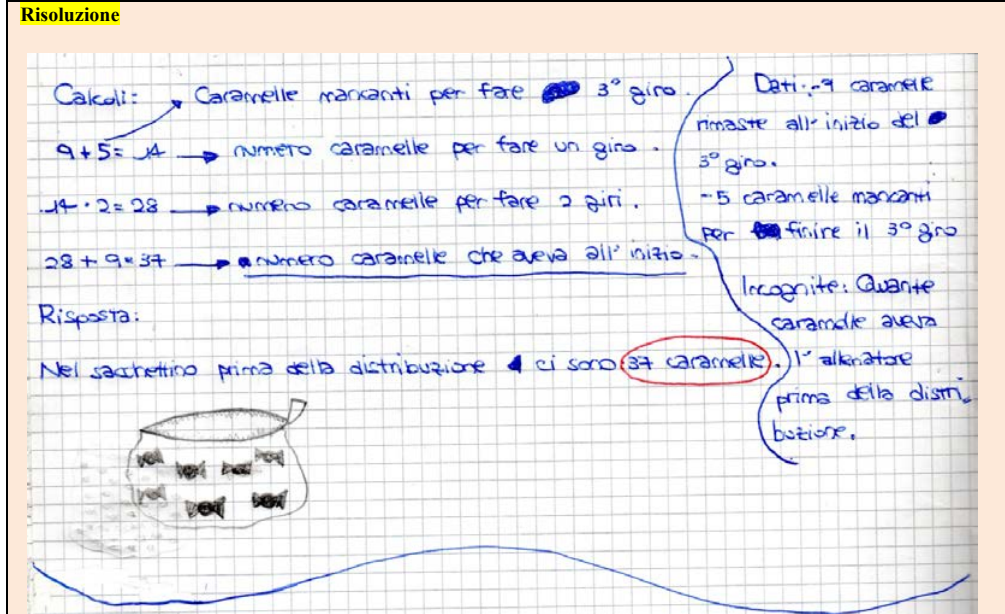 Risoluzione
Calcoli: Caramelle mancanti per fare 3° giro.
9+5= 14 numero caramelle per fare un giro.
14 · 2 = 28 numero caramelle per fare 2 giri.
28 + 9 = 37 numero caramelle che aveva all' inizio.
Risposta:
Nel sacchettino prima della distribuzione ci sono 37 caramelle.
Dati: -9 caramelle
rimaste all' inizio del
3° giro.
-5 caramelle mancanti
per finire il 3° giro
Incognite: Quante
caramelle aveva
l' allenatore
prima della distri_
buzione.